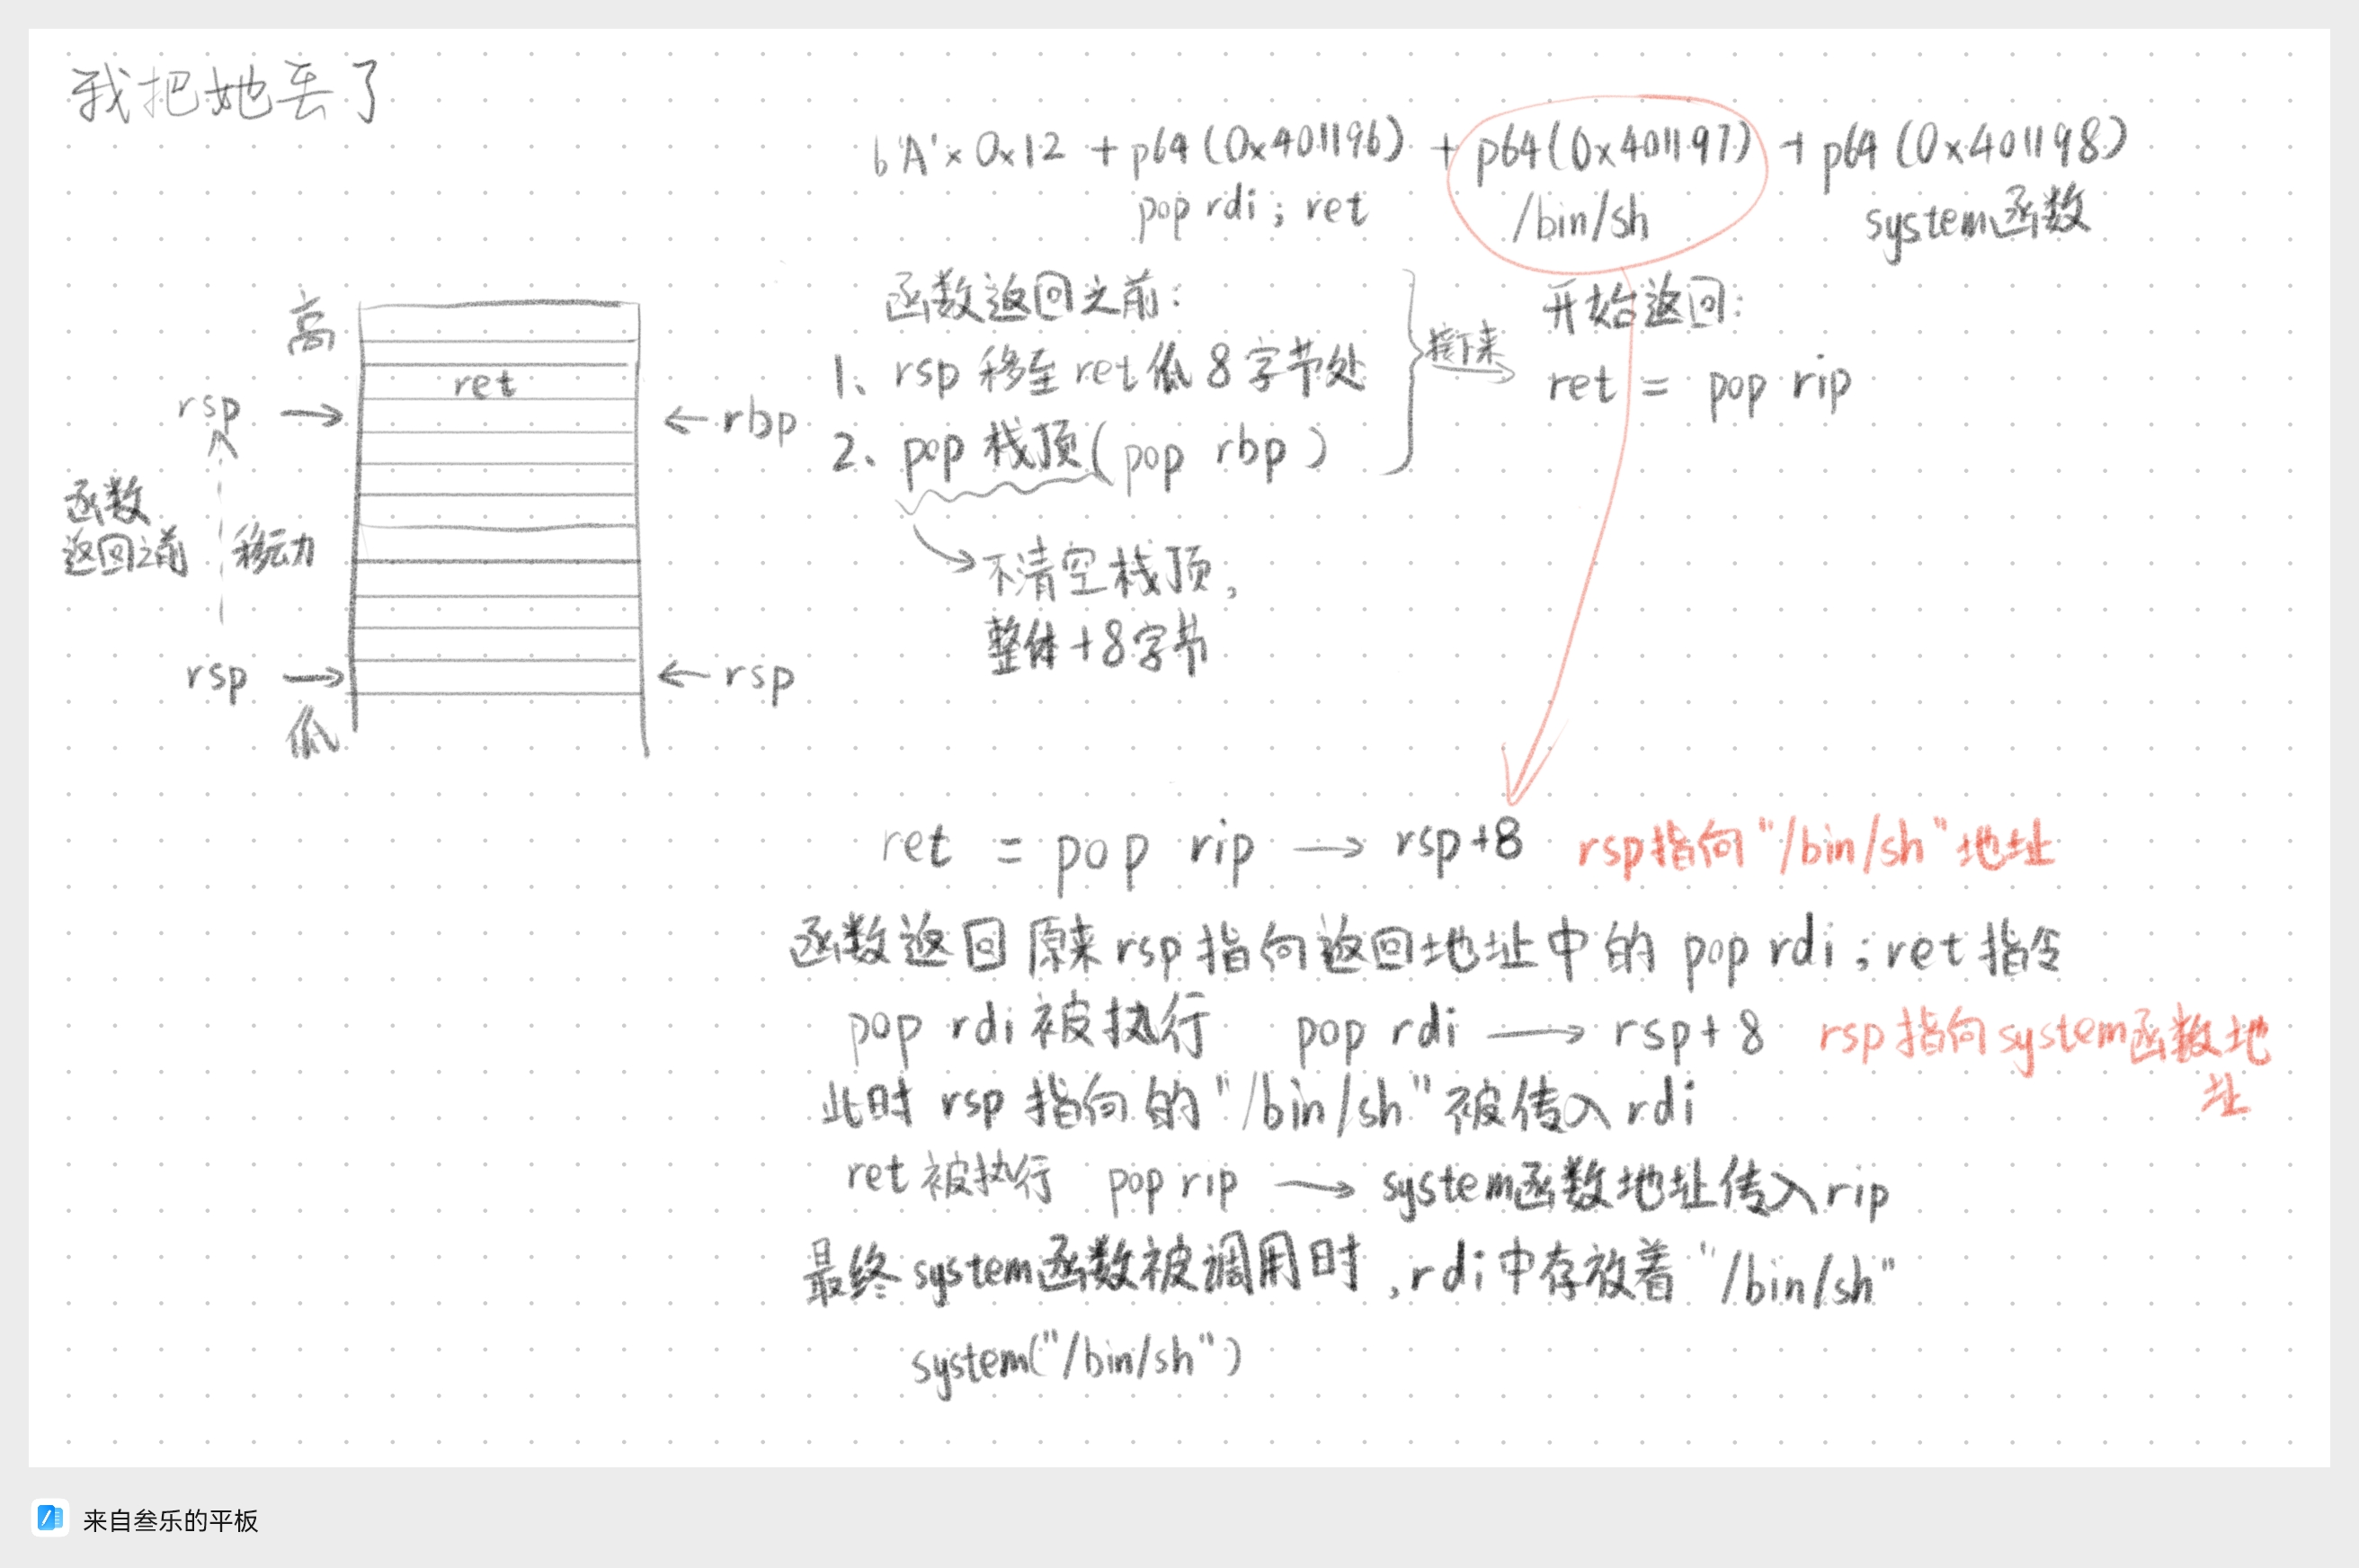 我把她丢了
b'A'× 0x12 + p64(0x401196) + p64(0x401197) + p64(0x401198)
pop rdi ; ret /bin/sh system函数
函数返回之前:
1、rsp 移至 ret 低 8 字节处
2、pop 栈顶(pop rbp)
不清空栈顶,
整体+8字节
接下来
开始返回:
ret = pop rip
高
ret
rsp → ← rbp
函数
返回之前 移动
rsp → ← rsp
低
ret = pop rip → rsp+8 rsp指向"/bin/sh"地址
函数返回原来rsp指向返回地址中的 pop rdi ; ret 指令
pop rdi 被执行 pop rdi → rsp+8 rsp指向system函数地
址
此时 rsp 指向的"/bin/sh"被传入 rdi
ret 被执行 pop rip → system函数地址传入rip
最终 system函数被调用时,rdi中存放着"/bin/sh"
system("/bin/sh")
来自叁乐的平板